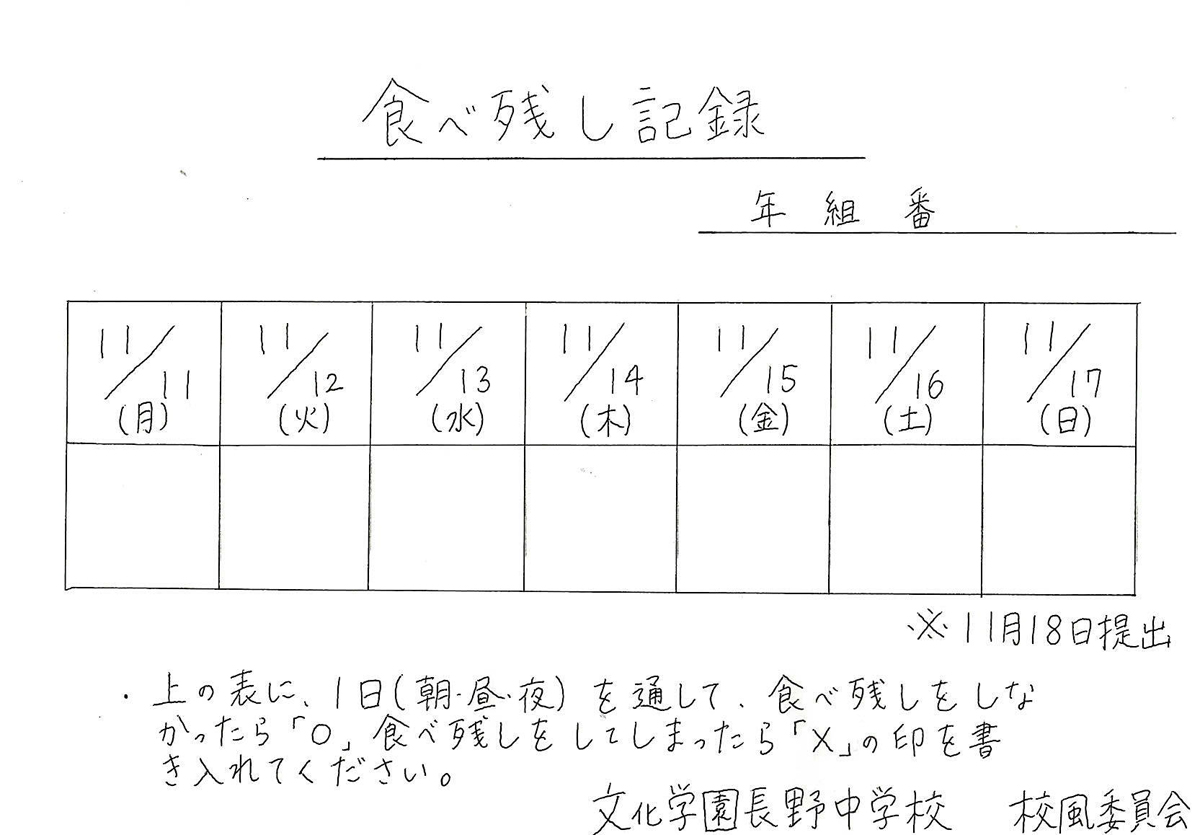 食べ残し記録
年 組 番
11/11 11/12 11/13 11/14 11/15 11/16 11/17
(月) (火) (水) (木) (金) (土) (日)
※11月18日提出
・上の表に、1日(朝・昼・夜)を通して、食べ残しをしな
かったら「○」食べ残しをしてしまったら「×」の印を書
き入れてください。
文化学園長野中学校 校風委員会